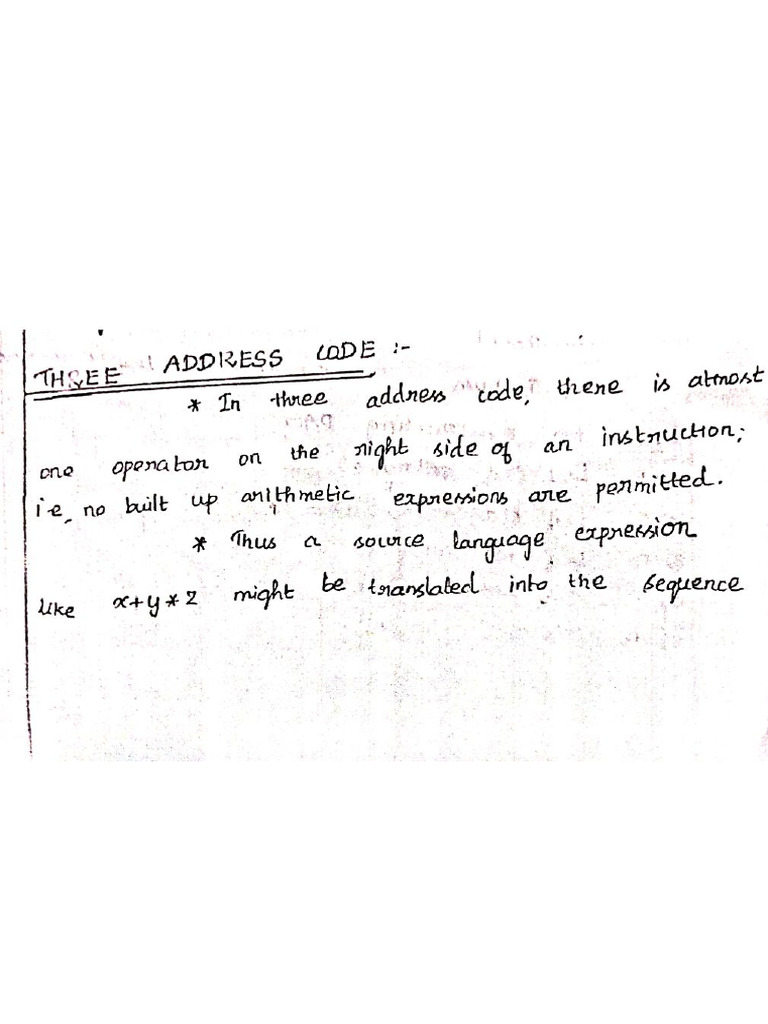 THREE ADDRESS CODE :-
* In three address code, there is atmost
one operator on the right side of an instruction;
i.e, no built up arithmetic expressions are permitted.
* Thus a source language expression
like x+y*z might be translated into the sequence